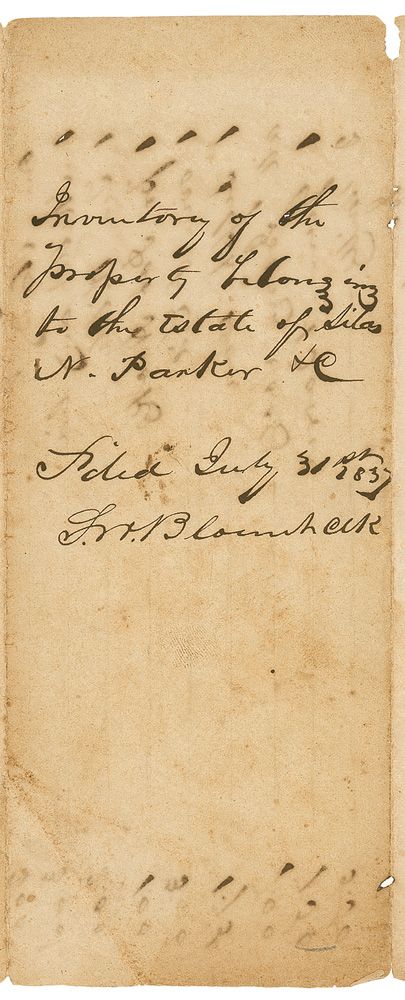 Inventory of the
property belonging
to the Estate of Silas
N. Parker &C
Filed July 31st 1837
S.W. Blount Clk